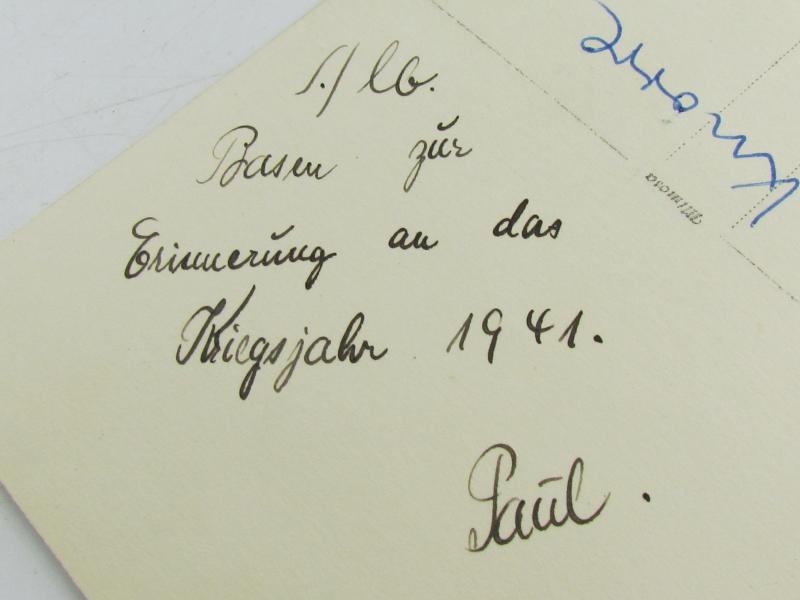 S./lb.
Basen zur
Erinnerung an das
Kriegsjahr 1941.
Paul.
Mimosa